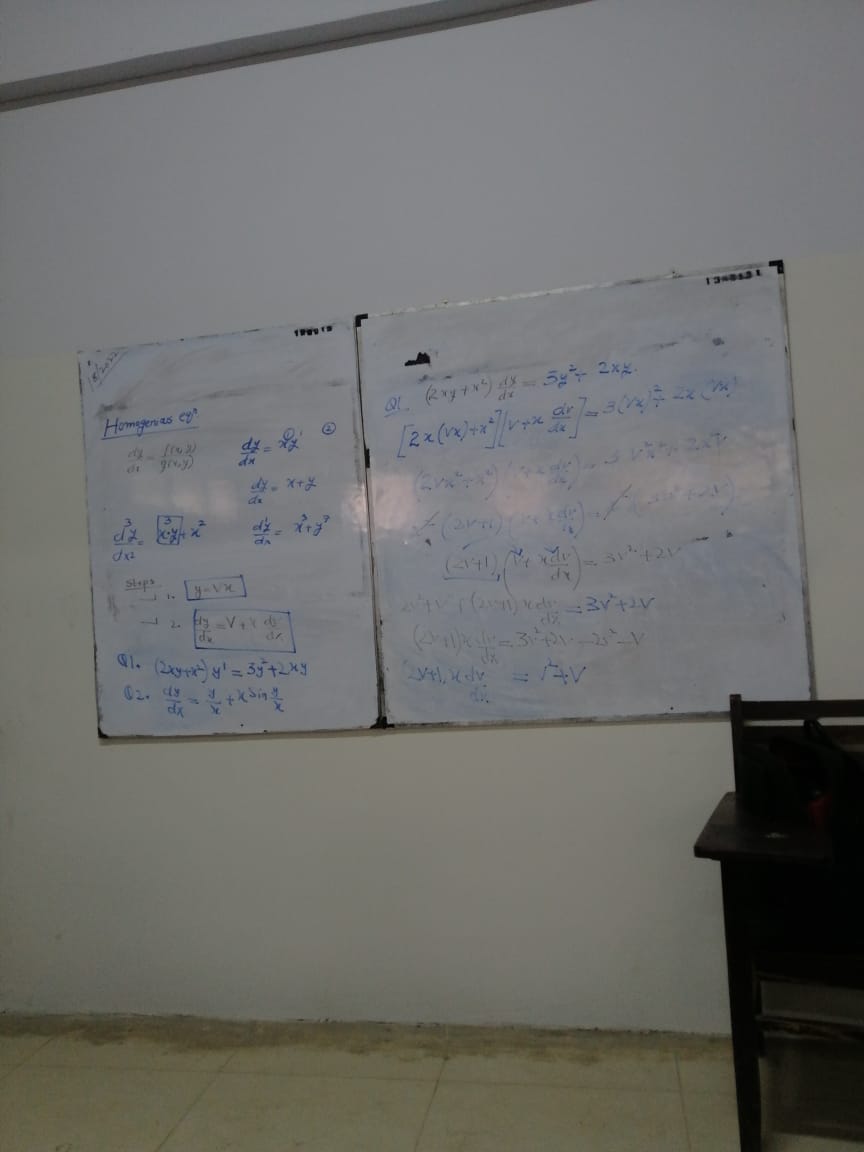 Homogenias eqⁿ
dy/dx = f(x,y)/g(x,y)
dy/dx = xy
dy/dx = x+y
dy/dx = x³+y³
Steps
1. y=vx
2. dy/dx = v + x dv/dx
Q1. (2xy+x²) y' = 3y²+2xy
Q2. dy/dx = y/x + x sin y/x
Q1. (2xy+x²) dy/dx = 3y²+ 2xy.
[2x(vx)+x²][v+x dv/dx] = 3(vx)²+ 2x(vx)
(2vx²+x²)(v+x dv/dx) = 3v²x²+2x²v
(2v+1)(v+x dv/dx) = (3v²+2v)
(2v+1)(v+x dv/dx) = 3v²+2v
2v²+v+(2v+1)x dv/dx = 3v²+2v
(2v+1)x dv/dx = 3v²+2v-2v²-v
2v+1, x dv/dx = v²+v